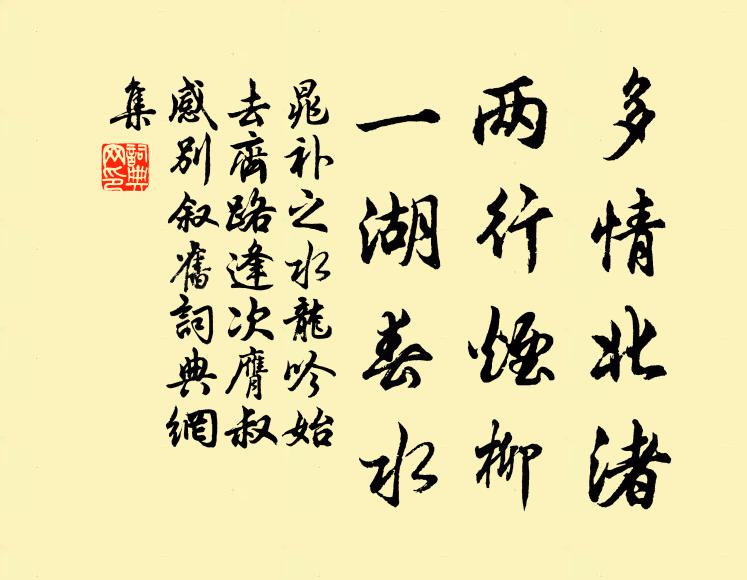 多情北渚
两行煙柳
一湖春水
晁补之水龍吟始
去齊路逢次膺叔
感别叙舊詞典網
集
詞典
网印